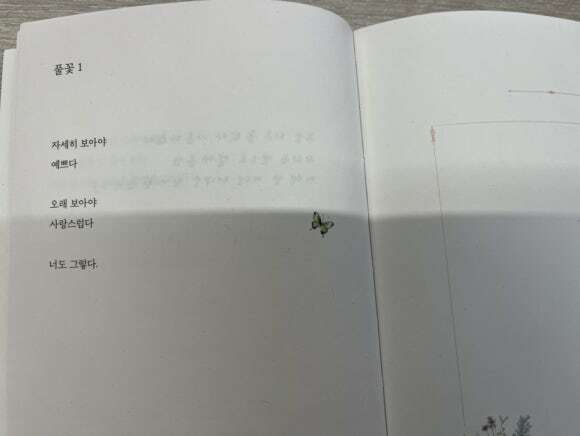 풀꽃 1
자세히 보아야
예쁘다
오래 보아야
사랑스럽다
너도 그렇다.